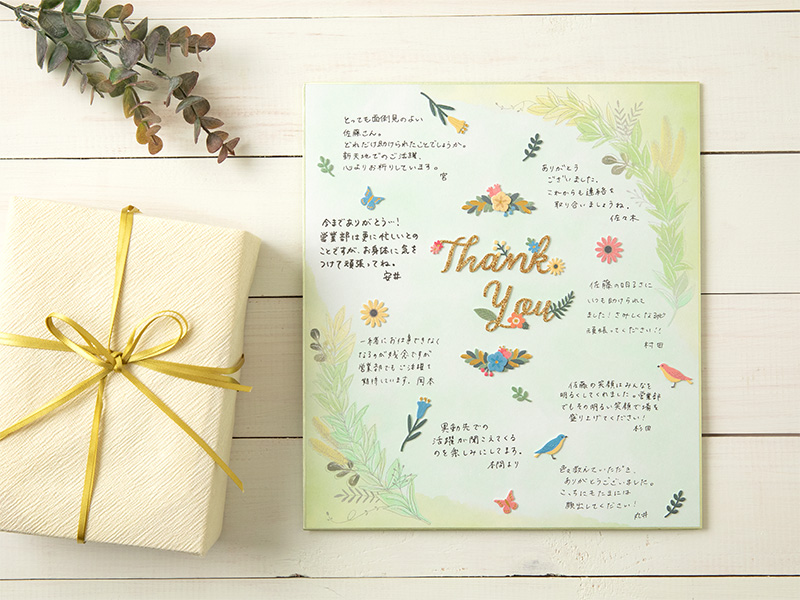 とっても面倒見のよい
佐藤さん。
どれだけ助けられたことでしょうか。
新天地でのご活躍、
心よりお祈りしています。
宮
ありがとう
ございました。
これからも連絡を
取り合いましょうね。
佐々木
今までありがとうー!
営業部は更に忙しいとの
ことですが、お身体に気を
つけて頑張ってね。
安井
Thank
You
佐藤の明るさに
いつも助けられて
ました!さみしくなるけど
頑張ってください!!
村田
一緒にお仕事できなく
なるのが残念ですが
営業部でもご活躍を
期待しています。岡本
佐藤の笑顔はみんなを
明るくしてくれました。営業部
でもその明るい笑顔で場を
盛り上げてください!
杉田
異動先での
活躍が聞こえてくる
のを楽しみにしてます。
本間より
色々教えていただき、
ありがとうございました。
こっちにもたまには
顔出してください!